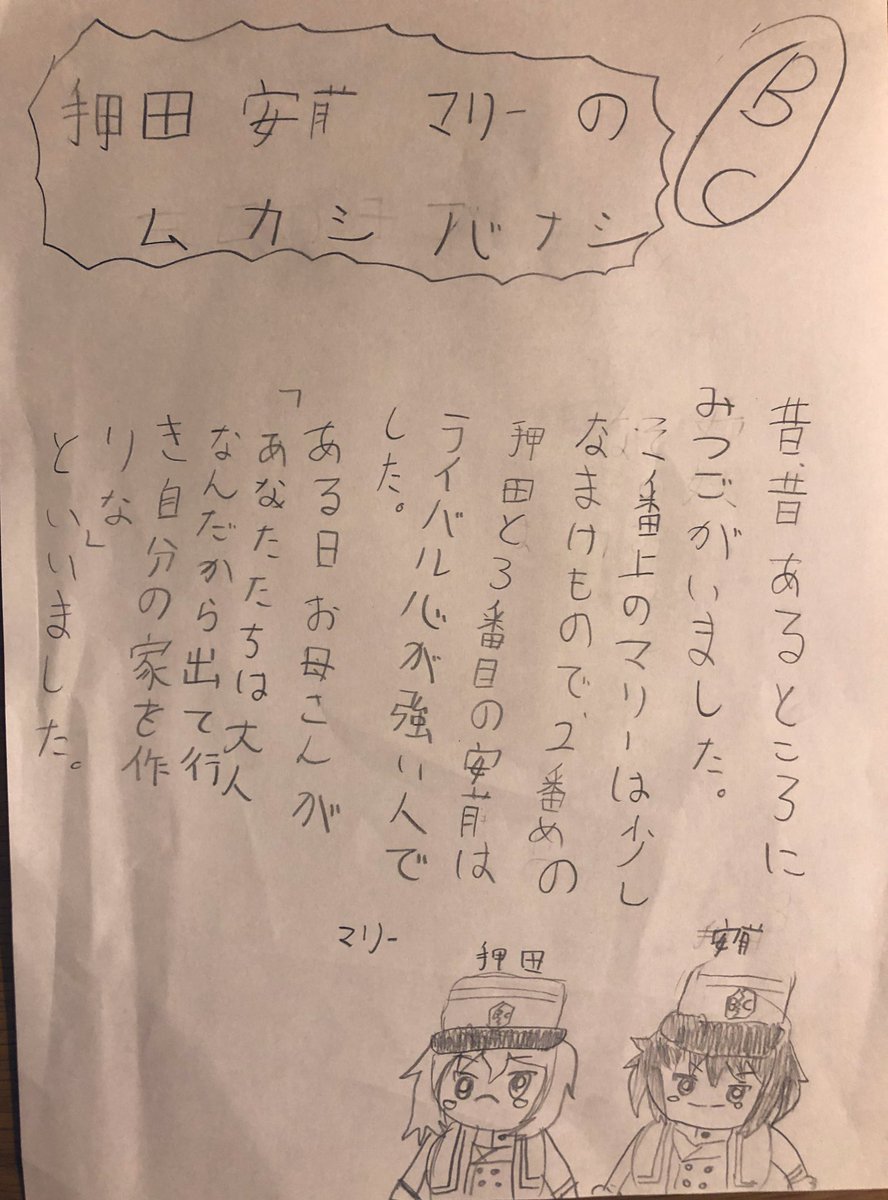 押田 安藤 マリーの
ムカシバナシ
BC
昔、昔あるところに
みつごがいました。
一番上のマリーは少し
なまけもので、2番めの
押田と3番目の安藤は
ライバル心が強い人で
した。
ある日お母さんが
「あなたたちは大人
なんだから出て行
き自分の家を作
りな」
といいました。
マリー
押田
安藤
BC
BC